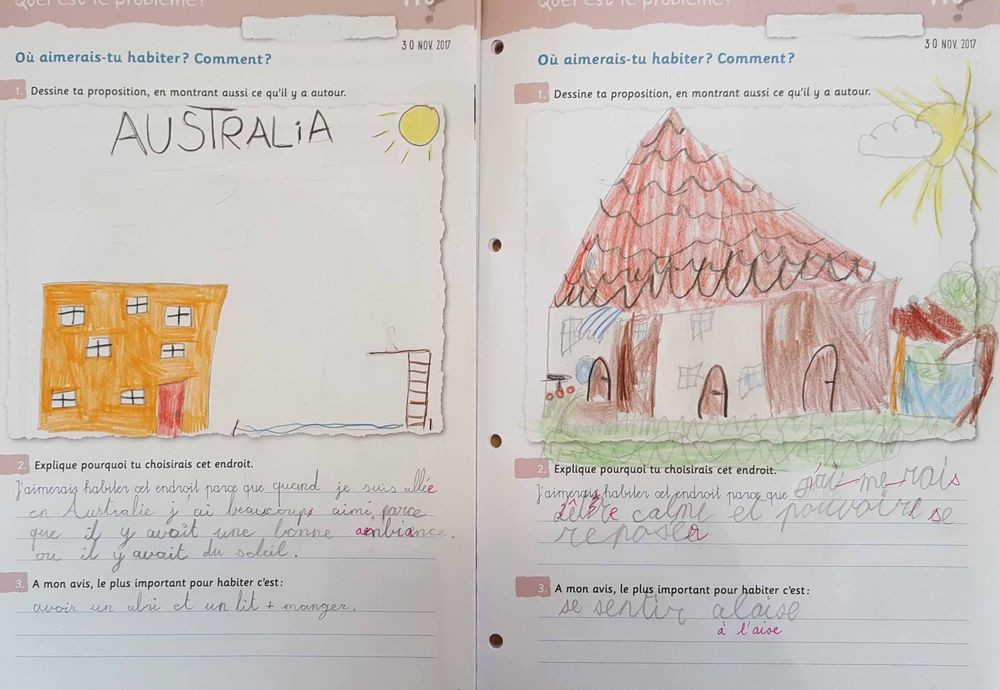 Quel est le problème?
30 NOV. 2017
Où aimerais-tu habiter? Comment?
1. Dessine ta proposition, en montrant aussi ce qu'il y a autour.
AUSTRALiA
2. Explique pourquoi tu choisirais cet endroit.
J'aimerais habiter cet endroit parce que quand je suis allée
en Australie j ai beaucoup aimé, parce
que il y avait une bonne ambiance.
ou il y avait du soleil.
3. A mon avis, le plus important pour habiter c'est:
avoir un abri et un lit + manger.
Quel est le problème?
30 NOV. 2017
Où aimerais-tu habiter? Comment?
1. Dessine ta proposition, en montrant aussi ce qu'il y a autour.
2. Explique pourquoi tu choisirais cet endroit.
J'aimerais habiter cet endroit parce que j'ai me rais
être calme et pouvoir se
reposer
3. A mon avis, le plus important pour habiter c'est:
se sentir alaise
à l'aise